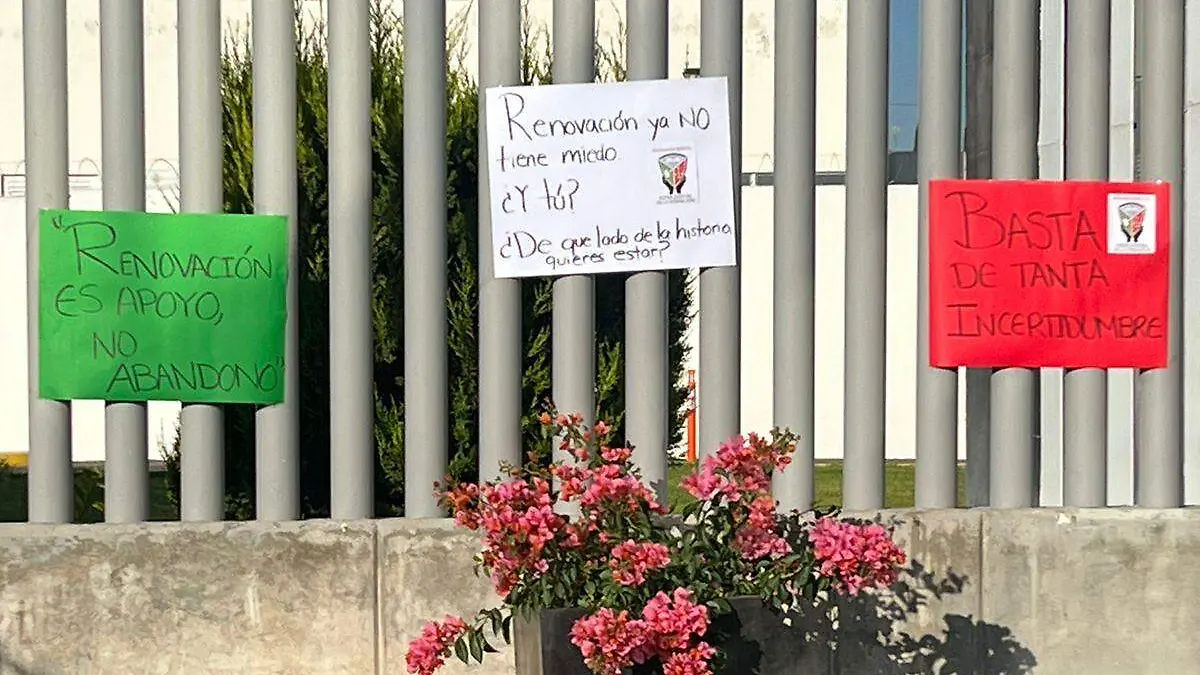 "RENOVACIÓN
ES APOYO,
NO
ABANDONO"
Renovación ya NO
tiene miedo.
¿Y tú?
¿De que lado de la historia
quieres estar?
BASTA
DE TANTA
INCERTIDUMBRE